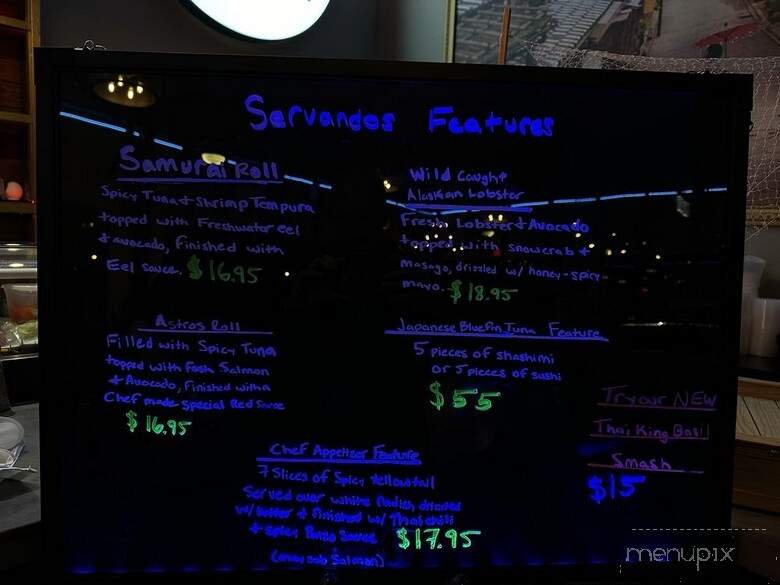 Servandos Features
Samurai Roll
Spicy Tuna + Shrimp Tempura
topped with Freshwater eel
+ avocado, finished with
Eel sauce. $16.95
Wild Caught
Alaskan Lobster
Fresh Lobster + Avocado
topped with snowcrab +
masago, drizzled w/ honey-spicy
mayo. $18.95
Astros Roll
Filled with Spicy Tuna
topped with Fresh Salmon
+ Avocado, Finished with a
Chef made special Red Sauce
$16.95
Japanese Bluefin Tuna Feature
5 pieces of shashimi
or 5 pieces of sushi
$55
Try our NEW
Thai King Basil
Smash
$15
Chef Appetizer Feature
7 Slices of Spicy Yellowtail
Served over white Radish drizzled
w/ butter + Finished w/ Thai chili
+ spicy Ponzu Sauce. $17.95
sub Salmon)
menupix